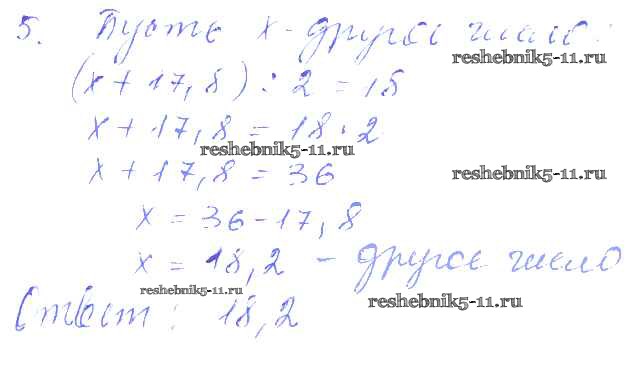 5. Пусть x - другое число:
reshebnik5-11.ru
(x + 17,8) : 2 = 18
x + 17,8 = 18 · 2
reshebnik5-11.ru
x + 17,8 = 36
reshebnik5-11.ru
x = 36 - 17,8
x = 18,2 - другое число
reshebnik5-11.ru
Ответ: 18,2
reshebnik5-11.ru